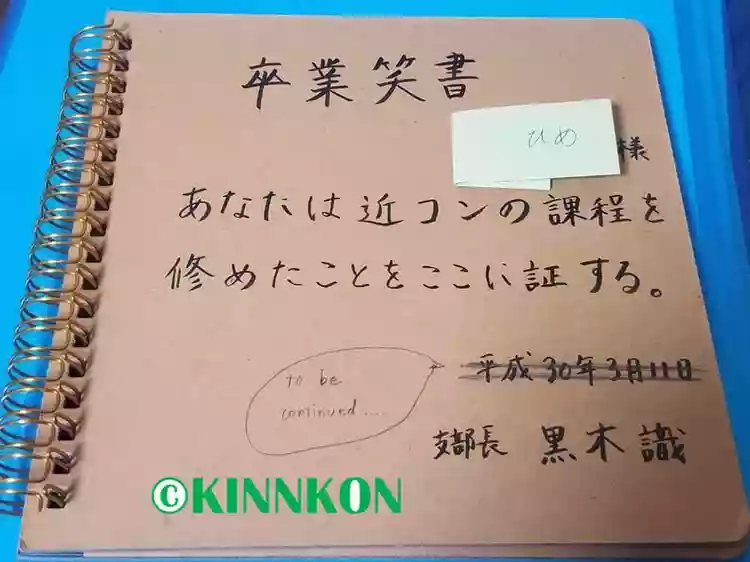 卒業笑書
ひめ 様
あなたは近コンの課程を
修めたことをここに証する。
平成30年3月11日
to be
continued....
支部長 黒木識
©KINNKON